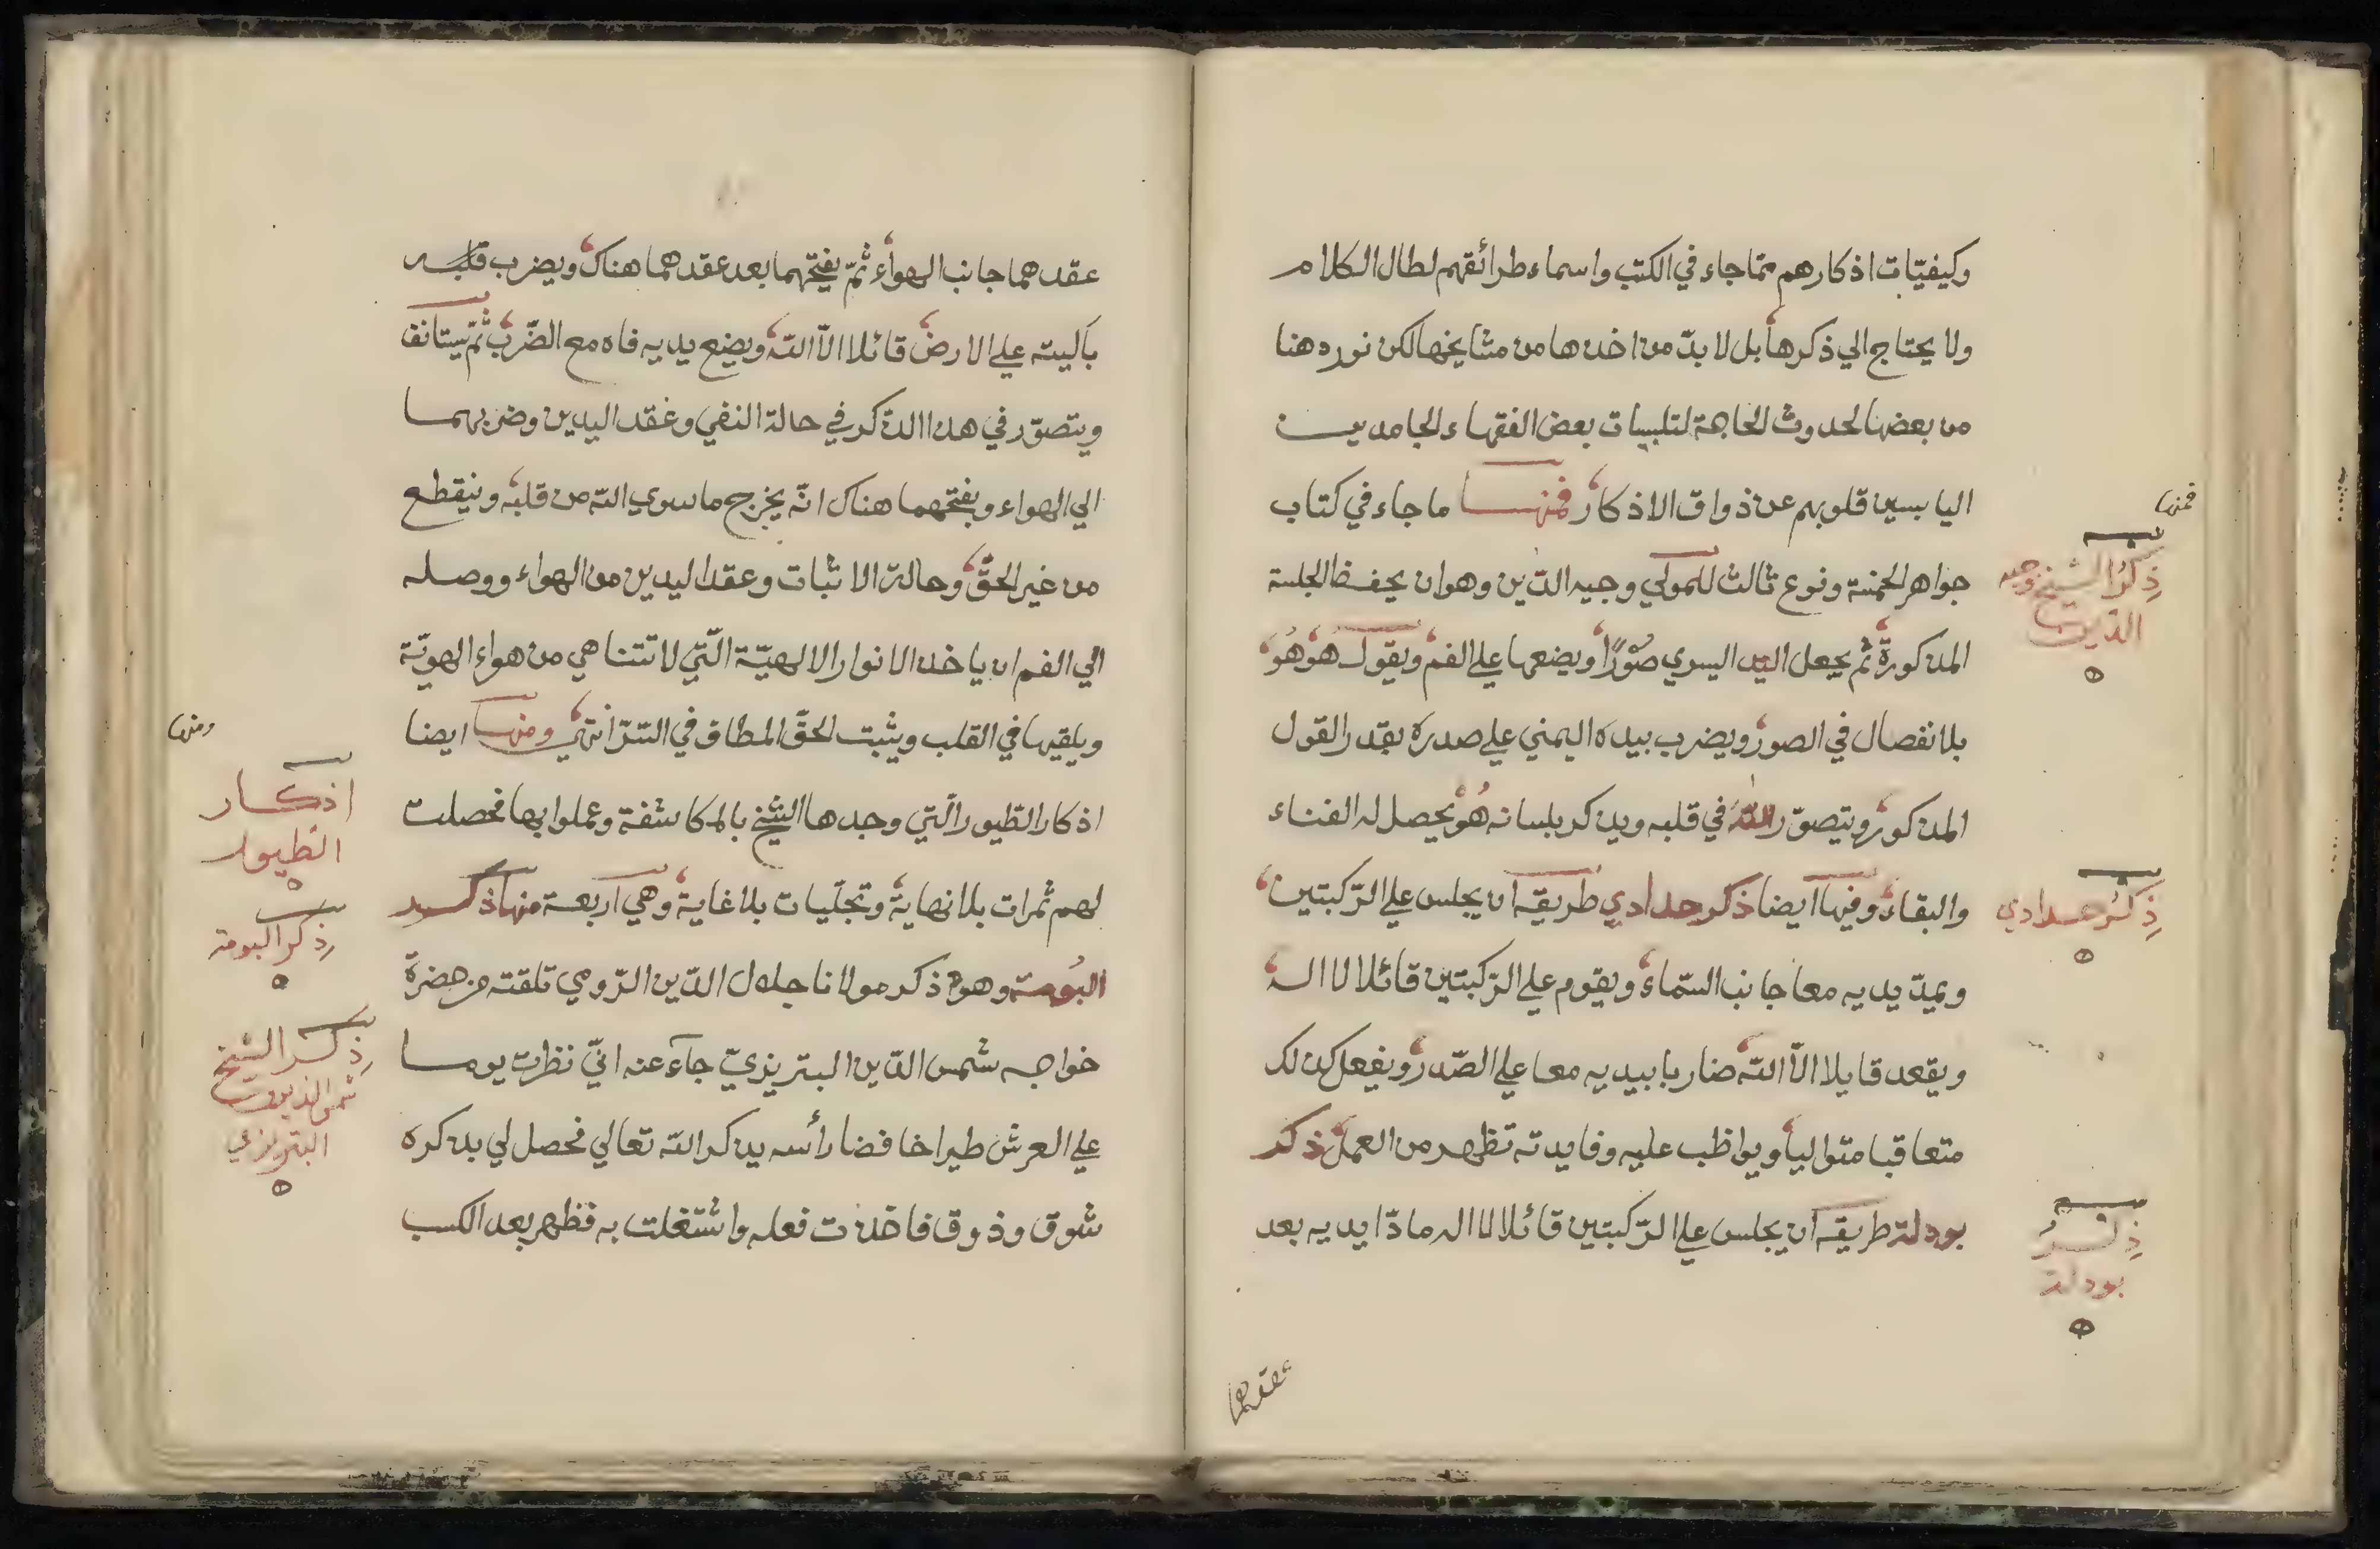 وكيفيّات اذكارهم ممّا جاء في الكتب واسماء طرائقهم لطال الكلام
ولا يحتاج الي ذكرها بل لا بدّ من اخذها من مشايخها لكن نورد هنا
من بعضها لحدوث الحاجة لتلبيسات بعض الفقهاء الجامدين
اليابسين قلوبهم عن ذواق الاذكار فمنها ما جاء في كتاب
جواهر الخمسة ونوع ثالث للمولي وجيه الدّين وهو ان يحفظ الجلسة
المذكورة ثمّ يجعل اليد اليسري صُوْرًا ويضعها علي الفم ويقول هُوْ هُوْ
بلا نفصال في الصور ويضرب بيده اليمني علي صدره بقدر القول
المذكور ويتصوّر اللّٰه في قلبه ويذكر بلسانه هُوْ يحصل له الفناء
والبقاء وفيها ايضا ذكر حدادي طريقه ان يجلس علي الرّكبتين
ويمدّ يديه معا جانب السّماء ويقوم علي الرّكبتين قائلا لا اله
ويقعد قايلا الاّ اللّه ضاربا بيديه معا علي الصّدر ويفعل كذلك
متعاقبا متواليا ويواظب عليه وفايدته تظهر من العمل ذكر
بودلة طريقه ان يجلس علي الرّكبتين قائلا لا اله مادّا يديه بعد
عقدهما
فمنها
ذِكْرُ الشيخ وجيه
الدّين
ذِكْرُ حدادي
ذِكْرُ
بودلة
عقدهما جانب الهواء ثمّ يفتحهما بعد عقدهما هناك ويضرب قلبه
باليته علي الارض قائلا الاّ اللّه ويضع يديه فاه مع الضّرب ثمّ يستانف
ويتصوّر في هذا الذكر في حالة النفي وعقد اليدين وضربهما
الي الهواء وبفتحهما هناك انّه يخرج ما سوي اللّه من قلبه وينقطع
من غير الحقّ وحالة الاثبات وعقد اليدين من الهواء ووصله
الي الفم ان ياخذ الانوار الالهيّة الّتي لا تتناهي من هواء الهويّة
ويلقيها في القلب ويثبت الحقّ المطلق في السّرّ انتهي ومنها ايضا
اذكار الطّيور الّتي وجدها الشيخ بالمكاشفة وعملوا بها فحصلت
لهم ثمرات بلا نهاية وتجلّيات بلا غاية وهي اربعة منها ذكر
البُومة وهو ذكر مولانا جلال الدّين الرّومي تلقته من حضرة
خواجه شمس الدّين التبريزيّ جاء عنه انّي نظرت يوما
علي العرش طيرا خافضا رأسه يذكر اللّه تعالي فحصل لي بذكره
شوق وذوق فاخذت فعله واشتغلت به فظهر بعد الكسب
ومنها
اذكار
الطّيور
ذكر البومة
ذِكر الشيخ
شمس الدّين
التبريزي